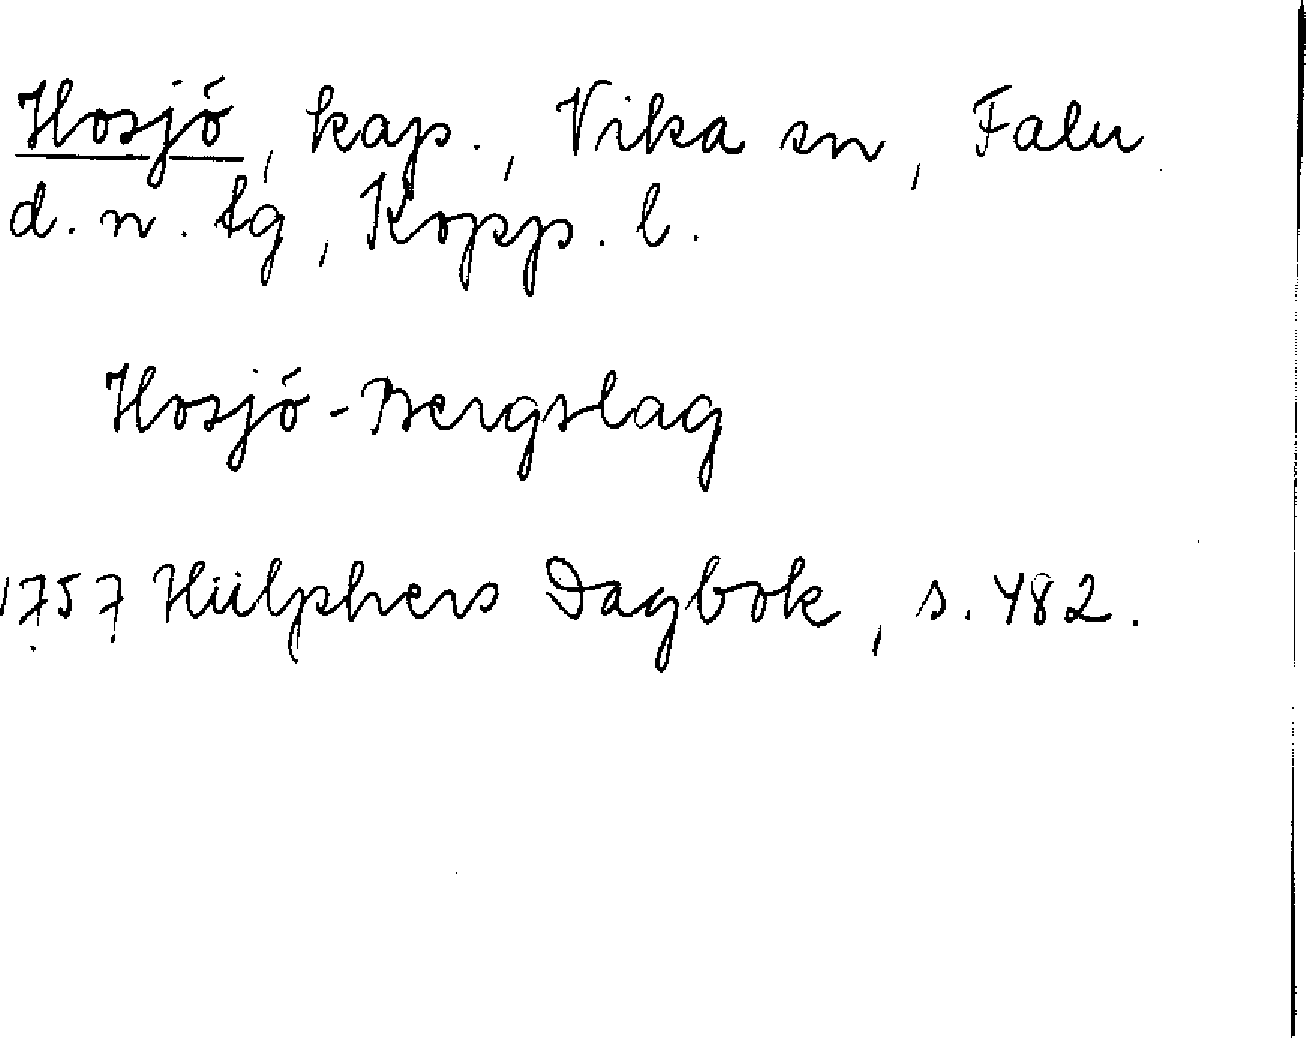 Hosjö, kap., Vika sn, Falu
d. n. tg, Kopp. l.
Hosjö-Bergslag
1757 Hülphers Dagbok, s. 482.